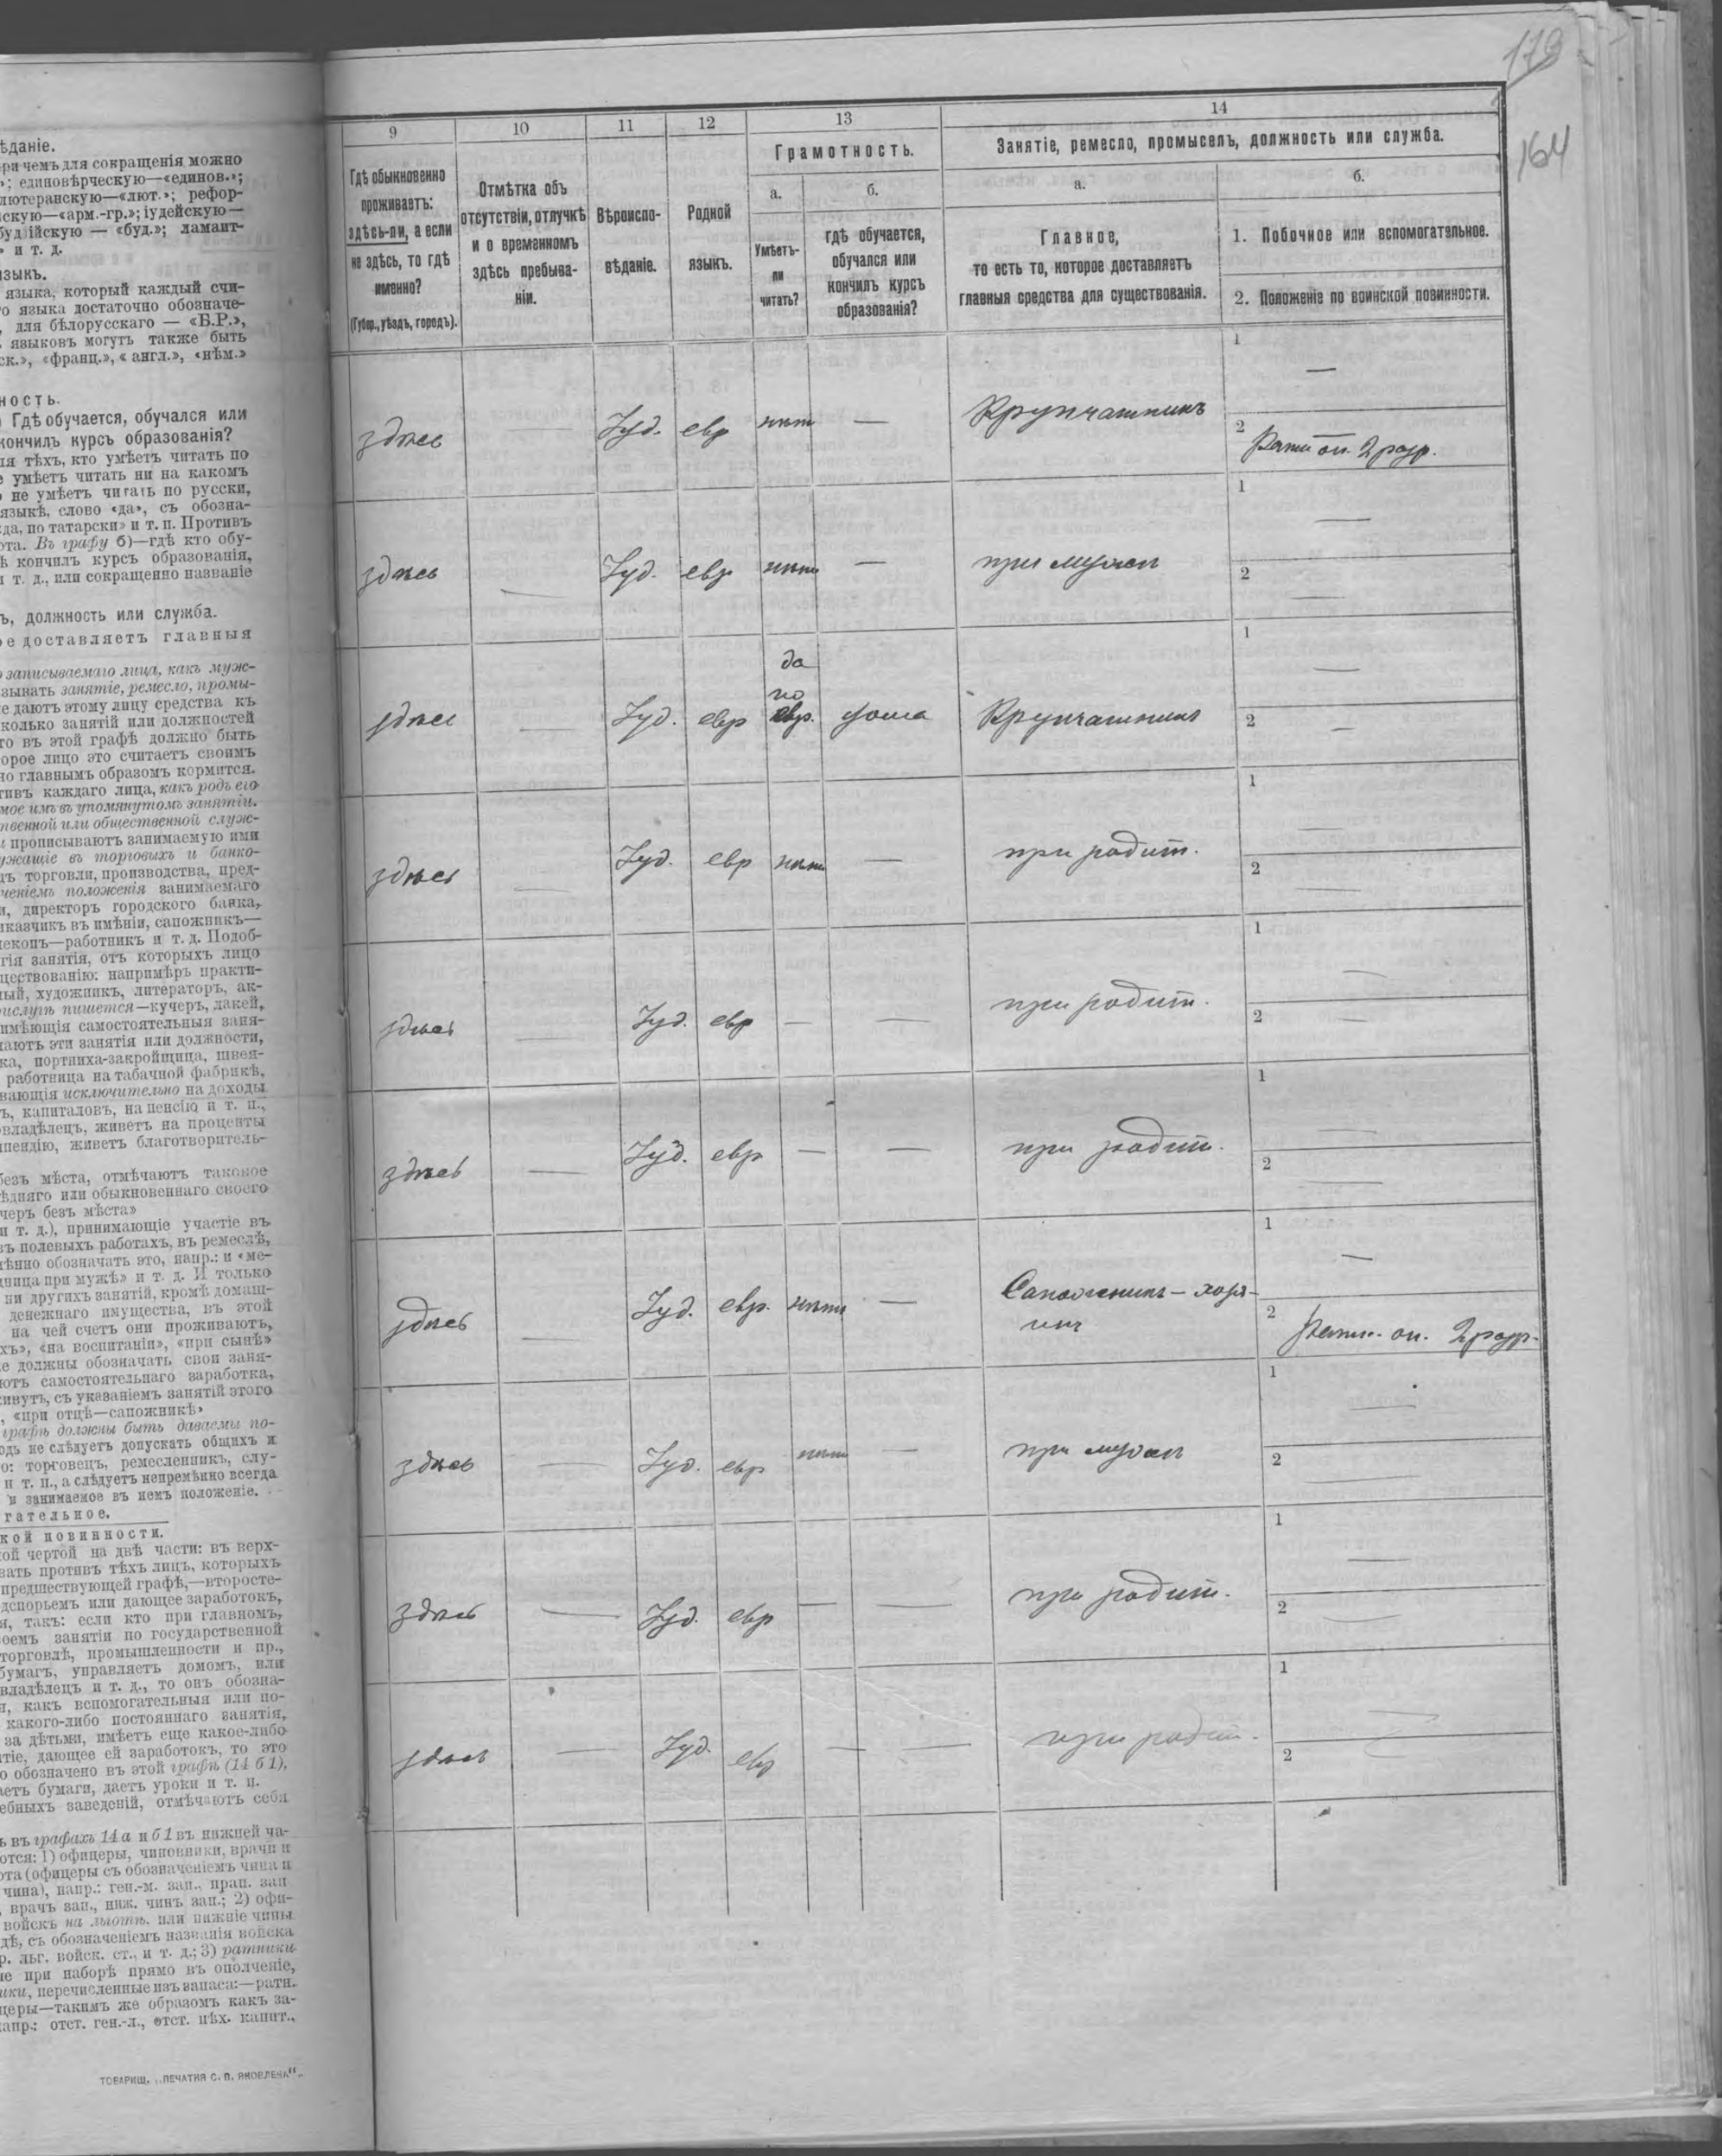 179
164
ѣданіе.
при чемъ для сокращенія можно
»; единовѣрческую—«единов.»;
лютеранскую—«лют.»; рефор-
скую—«арм.-гр.»; іудейскую—
буддійскую — «буд.»; ламаит-
» и т. д.
языкъ.
языка, который каждый счи-
го языка достаточно обозначе-
, для бѣлорусскаго — «Б.Р.»,
языковъ могутъ также быть
ск.», «франц.», «англ.», «нѣм.»
ность.
Гдѣ обучается, обучался или
кончилъ курсъ образованія?
ля тѣхъ, кто умѣетъ читать по
е умѣетъ читать ни на какомъ
о не умѣетъ читать по русски,
языкѣ, слово «да», съ обозна-
да, по татарски» и т. п. Противъ
ота. Въ графу б)—гдѣ кто обу-
ѣ кончилъ курсъ образованія,
и т. д., или сокращенно названіе
ъ, должность или служба.
ое доставляетъ главныя
записываемаго лица, какъ муж-
зывать занятіе, ремесло, промы-
е даютъ этому лицу средства къ
сколько занятій или должностей
то въ этой графѣ должно быть
орое лицо это считаетъ своимъ
но главнымъ образомъ кормится.
тивъ каждаго лица, какъ родъ его
мое имъ въ упомянутомъ занятіи.
твенной или общественной служ-
и прописываютъ занимаемую ими
ужащіе въ торговыхъ и банко-
дъ торговли, производства, пред-
ченіемъ положенія занимаемаго
и, директоръ городского банка,
иказчикъ въ имѣніи, сапожникъ—
лекопъ—работникъ и т. д. Подоб-
гія занятія, отъ которыхъ лицо
ществованію: напримѣръ практи-
ный, художникъ, литераторъ, ак-
ислугѣ пишется—кучеръ, лакей,
имѣющія самостоятельныя заня-
чаютъ эти занятія или должности,
ка, портниха-закройщица, швея-
работница на табачной фабрикѣ,
вающія исключительно на доходы
ъ, капиталовъ, на пенсію и т. п.,
овладѣлецъ, живетъ на проценты
ипендію, живетъ благотворитель-
безъ мѣста, отмѣчаютъ таковое
ѣдняго или обыкновеннаго своего
черъ безъ мѣста»
и т. д.), принимающіе участіе въ
въ полевыхъ работахъ, въ ремеслѣ,
ѣнно обозначать это, напр.: и «ме-
дница при мужѣ» и т. д. И только
ни другихъ занятій, кромѣ домаш-
денежнаго имущества, въ этой
на чей счетъ они проживаютъ,
хъ», «на воспитаніи», «при сынѣ»
е должны обозначать свои заня-
ютъ самостоятельнаго заработка,
живутъ, съ указаніемъ занятій этого
, «при отцѣ—сапожникѣ»
графѣ должны быть даваемы по-
одь не слѣдуетъ допускать общихъ и
о: торговецъ, ремесленникъ, слу-
и т. п., а слѣдуетъ непремѣнно всегда
и занимаемое въ немъ положеніе.
гательное.
кой повинности.
ой чертой на двѣ части: въ верх-
вать противъ тѣхъ лицъ, которыхъ
предшествующей графѣ,—второсте-
дспорьемъ или дающее заработокъ,
я, такъ: если кто при главномъ,
оемъ занятіи по государственной
торговлѣ, промышленности и пр.,
бумагъ, управляетъ домомъ, или
владѣлецъ и т. д., то онъ обозна-
и, какъ вспомогательныя или по-
какого-либо постояннаго занятія,
за дѣтьми, имѣетъ еще какое-либо
тіе, дающее ей заработокъ, то это
о обозначено въ этой графѣ (14 б 1),
аетъ бумаги, даетъ уроки и т. п.
ебныхъ заведеній, отмѣчаютъ себя
ь въ графахъ 14 а и б 1 въ нижней ча-
отся: 1) офицеры, чиновники, врачи и
ота (офицеры съ обозначеніемъ чина и
чина), напр.: ген.-м. зап., прап. зап
, врачъ зап., ниж. чинъ зап.; 2) офи-
войскъ на льготѣ. или нижніе чины
дѣ, съ обозначеніемъ названія войска
р. льг. войск. ст., и т. д.; 3) ратники
ые при наборѣ прямо въ ополченіе,
ики, перечисленные изъ запаса:—ратн.
церы—такимъ же образомъ какъ за-
апр.: отст. ген.-л., отст. пѣх. капит.,
ТОВАРИЩ. „ПЕЧАТНЯ С. П. ЯКОВЛЕВА“.
9 10 11 12 13 14
Гдѣ обыкновенно
проживаетъ:
здѣсь-ли, а если
не здѣсь, то гдѣ
именно?
(Губер., уѣздъ, городъ).
Отмѣтка объ
отсутствіи, отлучкѣ
и о временномъ
здѣсь пребыва-
ніи.
Вѣроиспо-
вѣданіе.
Родной
языкъ.
Грамотность.
а.
Умѣетъ-
ли
читать?
б.
гдѣ обучается,
обучался или
кончилъ курсъ
образованія?
Занятіе, ремесло, промыселъ, должность или служба.
а.
Главное,
то есть то, которое доставляетъ
главныя средства для существованія.
б.
1. Побочное или вспомогательное.
2. Положеніе по воинской повинности.
здѣсь — Іуд. евр нѣтъ — Крупчатникъ 1 —
2 Ратн оп. 2 разр.
здѣсь — Іуд. евр нѣтъ — при мужѣ 1 —
2 —
здѣсь — Іуд. евр да по евр. дома Крупчатникъ 1 —
2 —
здѣсь — Іуд. евр нѣтъ — при родит. 1 —
2 —
здѣсь — Іуд. евр — — при родит. 1 —
2 —
здѣсь — Іуд. евр — — при родит. 1 —
2 —
здѣсь — Іуд. евр. нѣтъ — Сапожникъ – хозя-
инъ 1 —
2 Ратн. оп. 2 разр.
здѣсь — Іуд. евр нѣтъ — при мужѣ 1 —
2 —
здѣсь — Іуд. евр — — при родит. 1 —
2 —
здѣсь — Іуд. евр — — при родит. 1 —
2 —